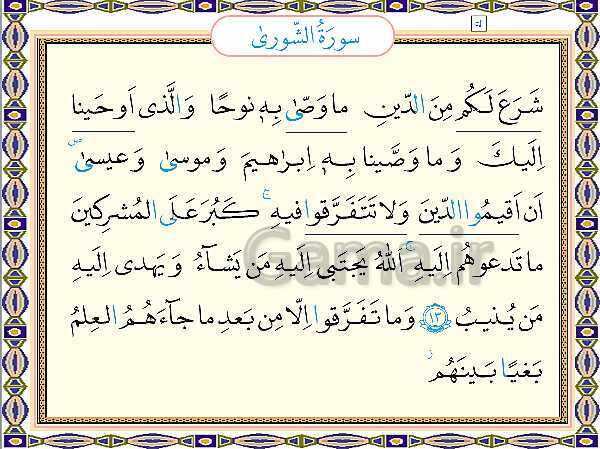 سورَةُ الشّوریٰ
شَرَعَ لَكُم مِنَ الدّينِ ما وَصّىٰ بِهٖ نوحًا وَ الَّذى اَوحَينا
اِلَيكَ وَ ما وَصَّينا بِهٖ اِبراهيمَ وَ موسىٰ وَ عيسىٰ ۖ
اَن اَقيمُوا الدّينَ وَ لا تَتَفَرَّقوا فيهِ ۚ كَبُرَ عَلَى المُشرِكينَ
ما تَدعوهُم اِلَيهِ ۚ اَللّٰهُ يَجتَبى اِلَيهِ مَن يَشآءُ وَ يَهدى اِلَيهِ
مَن يُنيبُ ﴿١٣﴾ وَ ما تَفَرَّقوا اِلّا مِن بَعدِ ما جآءَهُمُ العِلمُ
بَغيًا بَينَهُم ۚ
Gama.ir